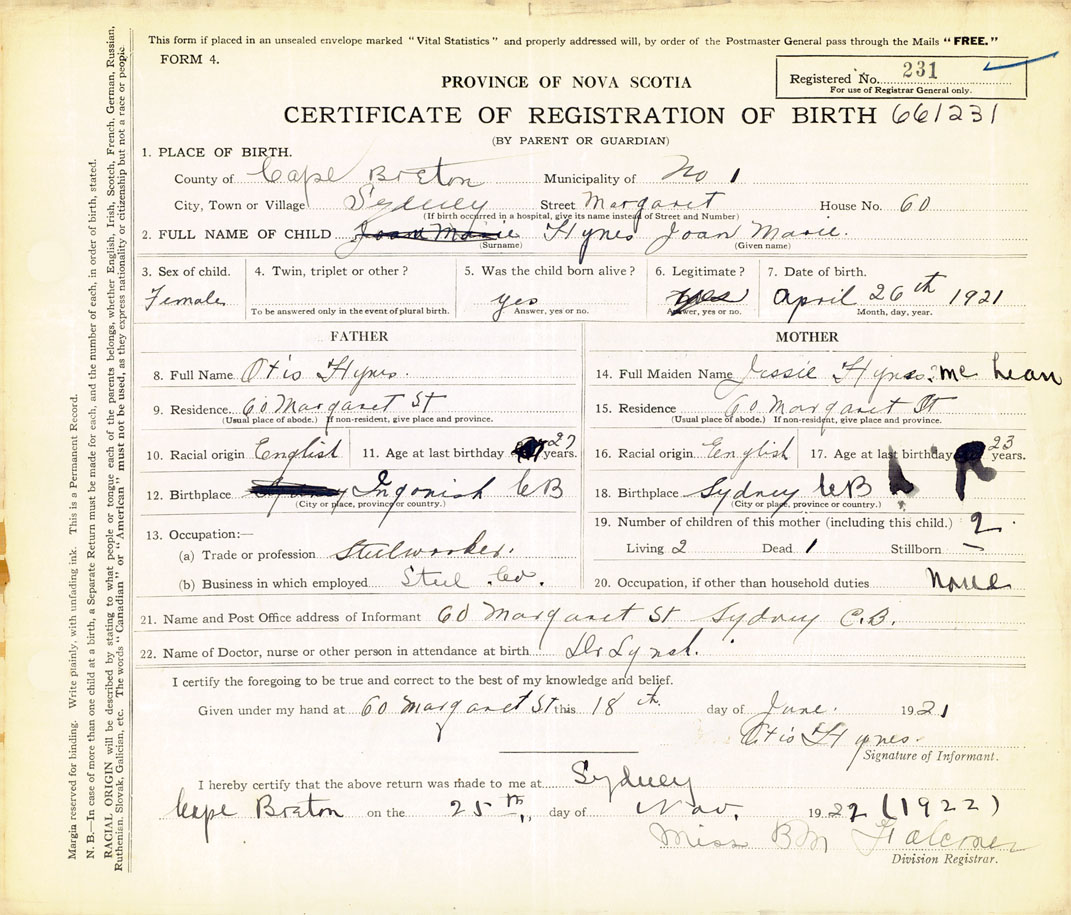 This form if placed in an unsealed envelope marked "Vital Statistics" and properly addressed will, by order of the Postmaster General pass through the Mails "FREE."
FORM 4.
Registered No. 231
For use of Registrar General only.
PROVINCE OF NOVA SCOTIA
CERTIFICATE OF REGISTRATION OF BIRTH 661231
(BY PARENT OR GUARDIAN)
1. PLACE OF BIRTH.
County of Cape Breton Municipality of No 1
City, Town or Village Sydney Street Margaret House No. 60
(If birth occurred in a hospital, give its name instead of Street and Number)
2. FULL NAME OF CHILD Joan Marie Hynes Joan Marie.
(Surname) (Given name)
3. Sex of child. 4. Twin, triplet or other? 5. Was the child born alive? 6. Legitimate? 7. Date of birth.
Female yes yes April 26th 1921
To be answered only in the event of plural birth. Answer, yes or no. Answer, yes or no. Month, day, year.
FATHER
8. Full Name Otis Hynes.
9. Residence 60 Margaret St
(Usual place of abode.) If non-resident, give place and province.
10. Racial origin English 11. Age at last birthday 27 years.
12. Birthplace Sydney Ingonish CB
(City or place, province or country.)
13. Occupation:—
(a) Trade or profession Steelworker.
(b) Business in which employed Steel Co.
MOTHER
14. Full Maiden Name Jessie Hynes. Mc Lean
15. Residence 60 Margaret St
(Usual place of abode.) If non-resident, give place and province.
16. Racial origin English 17. Age at last birthday 23 years.
18. Birthplace Sydney CB
(City or place, province or country.)
19. Number of children of this mother (including this child.) 2
Living 2 Dead 1 Stillborn –
20. Occupation, if other than household duties None
21. Name and Post Office address of Informant 60 Margaret St Sydney C.B.
22. Name of Doctor, nurse or other person in attendance at birth Dr Lynch.
I certify the foregoing to be true and correct to the best of my knowledge and belief.
Given under my hand at 60 Margaret St this 18th day of June. 1921
Otis Hynes.
Signature of Informant.
I hereby certify that the above return was made to me at Sydney
Cape Breton on the 25th day of Nov. 1922 (1922)
Miss B M Falconer
Division Registrar.
Margin reserved for binding. Write plainly, with unfading ink. This is a Permanent Record.
N. B.—In case of more than one child at a birth, a Separate Return must be made for each, and the number of each, in order of birth, stated.
RACIAL ORIGIN will be described by stating to what people or tongue each of the parents belongs, whether English, Irish, Scotch, French, German, Russian,
Ruthenian. Slovak, Galician, etc. The words "Canadian" or "American" must not be used, as they express nationality or citizenship but not a race or people